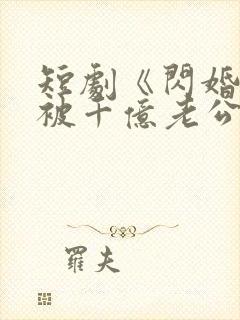 短劇《閃婚
被千億老公
羅夫